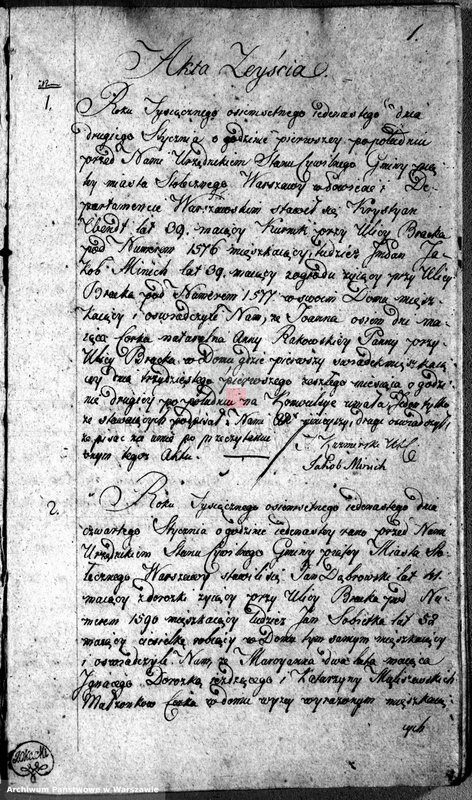 1.
Akta Zeyścia.
Num
1.
Roku Tysiącznego osiemsetnego iedenastego dnia
drugiego Stycznia o godzinie pierwszey popołudniu
przed Nami Urzędnikiem Stanu Cywilnego Gminy pią
tey miasta Stołecznego Warszawy w Powiecie i De
partamencie Warszawskim stawił się Krystyan
lat 39. maiący przy Ulicy Bracka
pod Numerem 1576 mieszkaiący, tudzież Ja
kob Minich lat 39. maiący z ogrodu żyiący przy Ulicy
Bracka pod Numerem 1577 w swoim Domu miesz
kaiący i oświadczyli Nam, że Joanna osiem dni ma
iąca Corka naturalna Anny Rakowskiey Panny przy
Ulicy Bracka w Domu gdzie pierwszy świadek mieszkaią
cy dnia trzydziestego pierwszego zeszłego miesiąca o godzi
nie drugiey po południu na Konwulsye umarła,
ze stawaiących podpisał z Nami Akt pierwszy, drugi oświadczył,
że pisać nie umie po przeczytaniu
onym tegoż Aktu.
Jakob Minich
2.
Roku Tysiącznego osiemsetnego iedenastego dnia
czwartego Stycznia o godzinie iedenastey rano przed Nami
Urzędnikiem Stanu Cywilnego Gminy piątey Miasta Sto
łecznego Warszawy stawili się Jan Dąbrowski lat 41.
maiący z dorożki żyiący przy Ulicy Bracka pod Nu
merem 1590 mieszkaiący tudzież Jan Sobieska lat 58
maiący ciesielkę robiący w Domu tym samym mieszkaiący
i oświadczyli Nam, że Maryanna dwa lata maiąca
Ignacego Dorożką ieżdżącego i Katarzyny Maliszewskich
Małżonkow Corka w domu wyżey wyrażonym mieszkaią
cych
Archiwum Państwowe w Warszawie